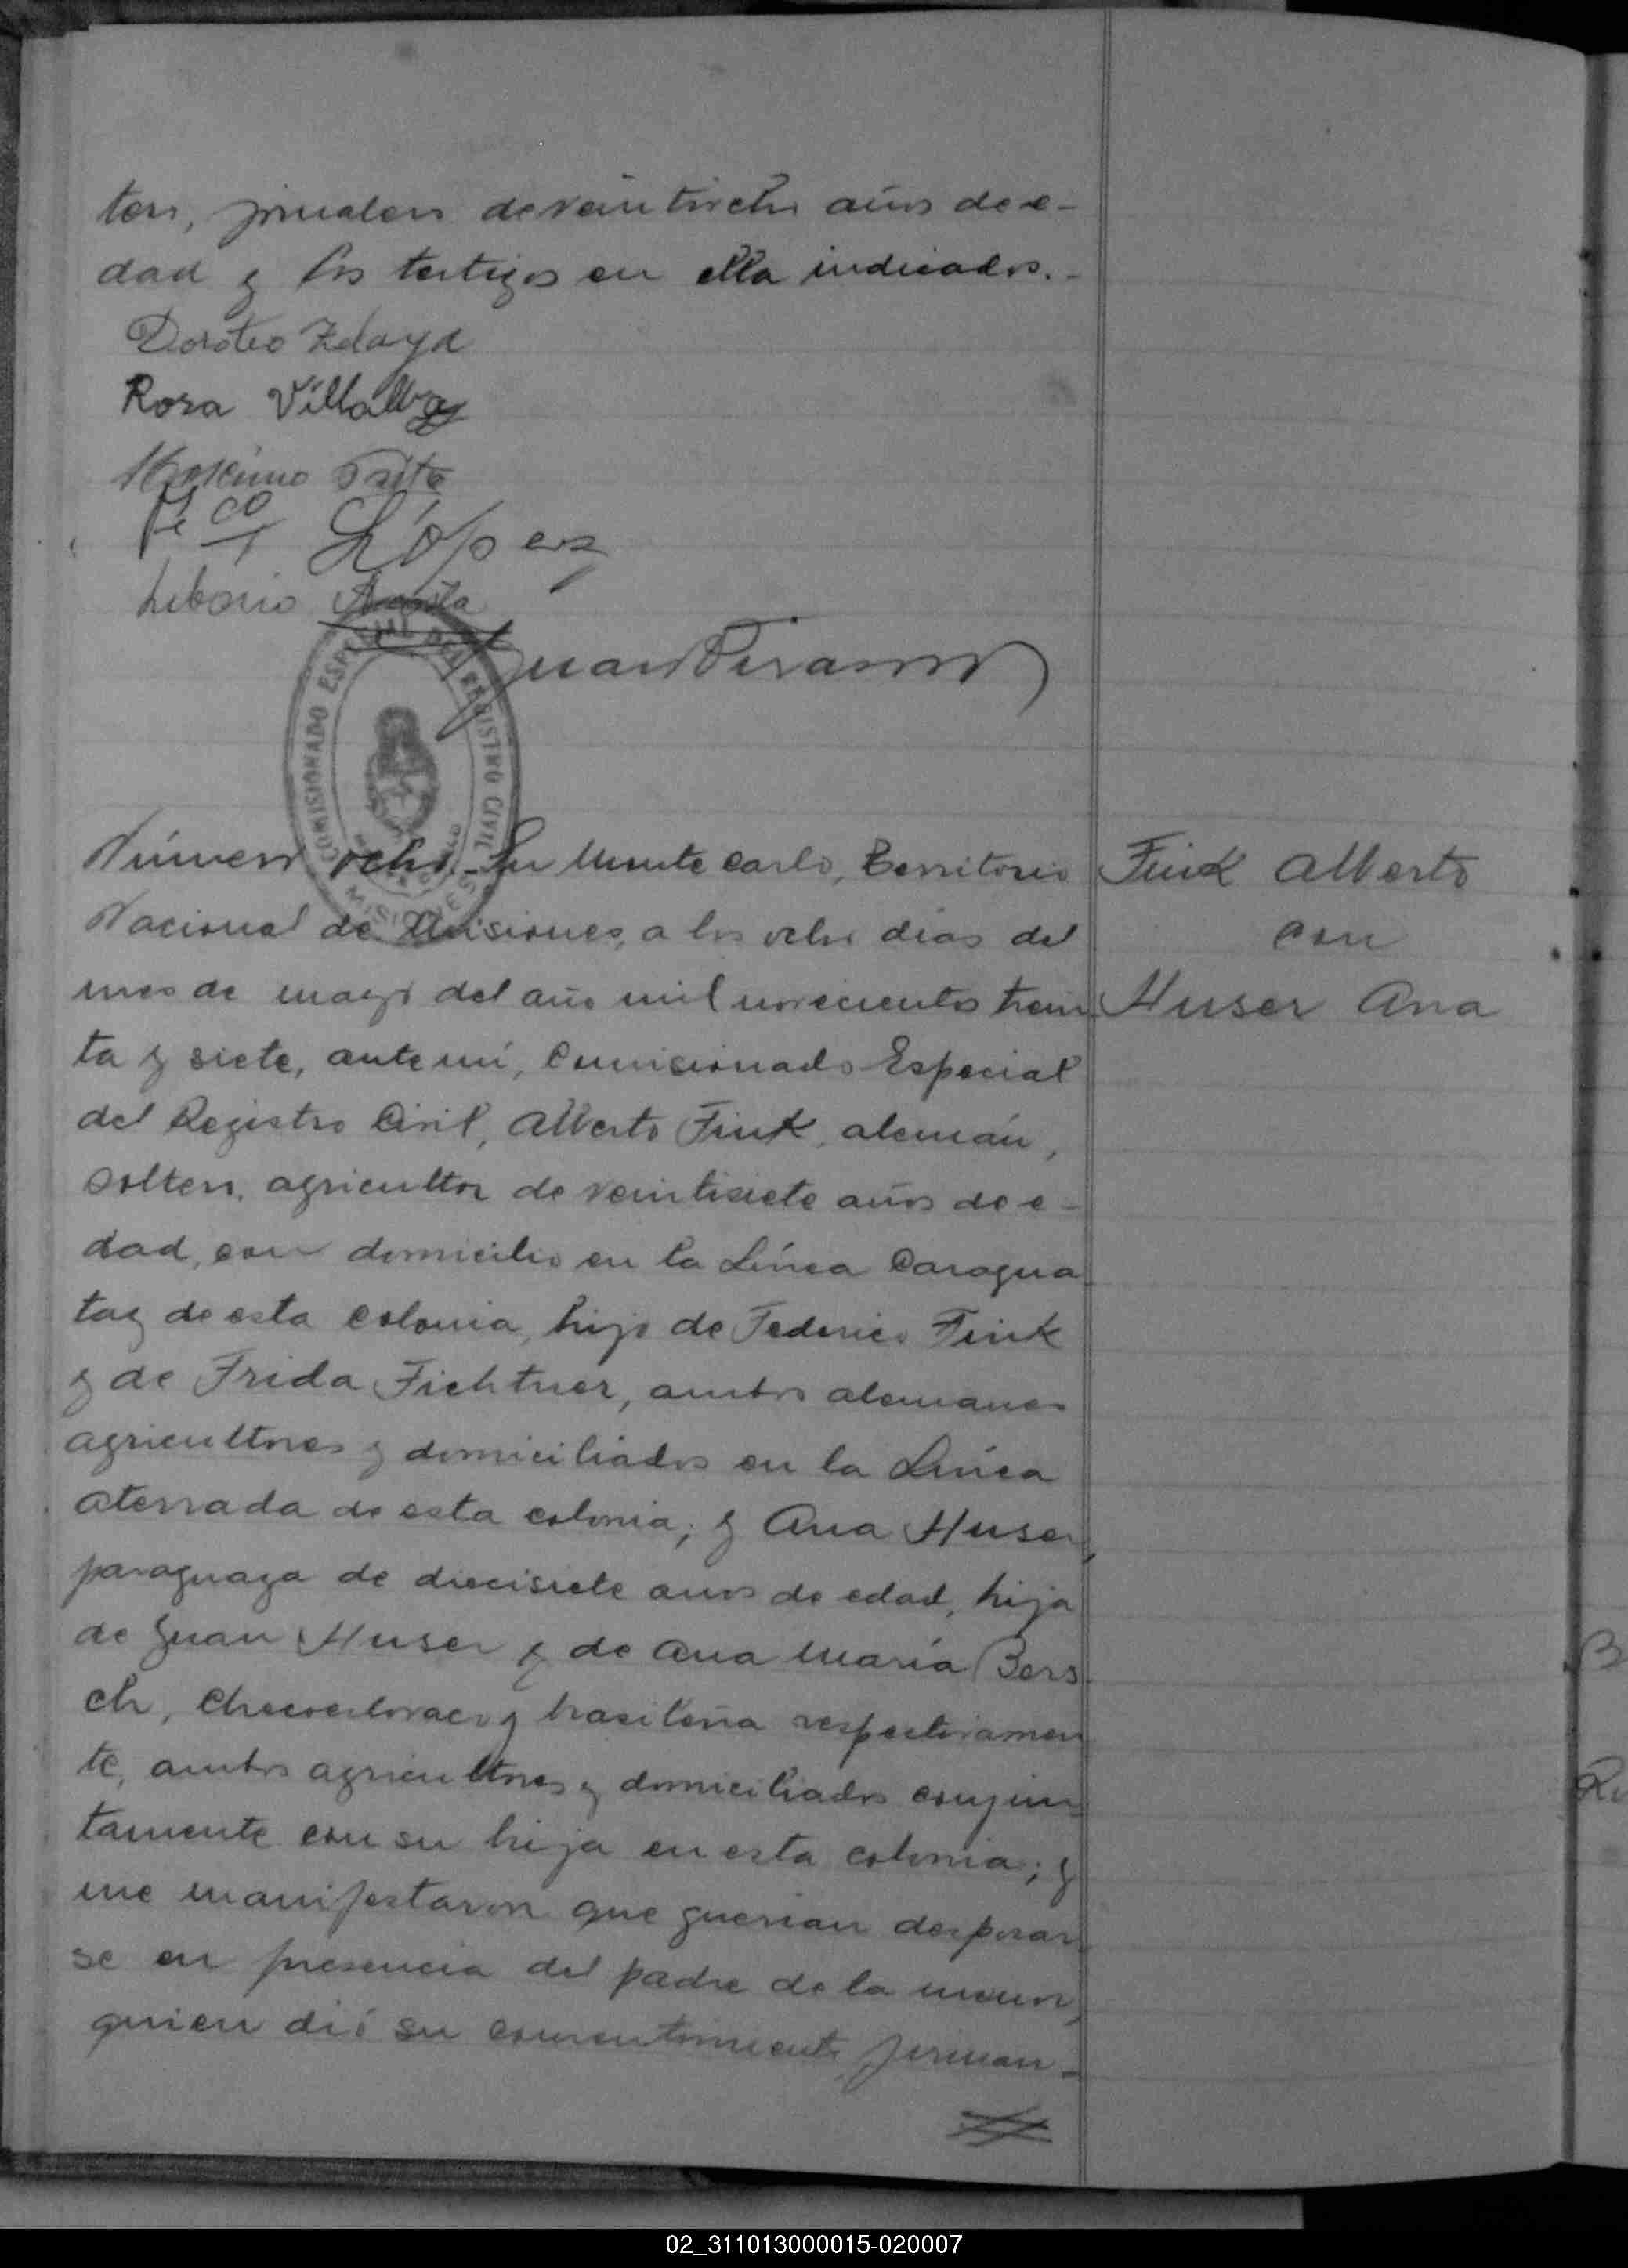 tero, jornalero de veintiocho años de e-
dad y los testigos en ella indicados.-
Doroteo Zelaya
Rosa Villalba
Maximo
Fco López
Liborio Acosta
COMISIONADO ESPECIAL DEL REGISTRO CIVIL
MISIONES
Número ocho.- En Monte Carlo, Territorio
Nacional de Misiones, a los ocho días del
mes de mayo del año mil novecientos trein
ta y siete, ante mí, Comisionado Especial
del Registro Civil, Alberto Fink, alemán,
soltero, agricultor de veintisiete años de e-
dad, con domicilio en la Línea Caragua
tay de esta colonia, hijo de Federico Fink
y de Frida Fichtner, ambos alemanes
agricultores y domiciliados en la Línea
Aterrada de esta colonia; y Ana Huser,
paraguaya de diecisiete años de edad, hija
de Juan Huser y de Ana María Bers
ch, checoeslovaco y brasileña respectivamen
te, ambos agricultores y domiciliados conjun
tamente con su hija en esta colonia; y
me manifestaron que querían desposar
se en presencia del padre de la menor,
quien dió su consentimiento firman-
Fink Alberto
con
Huser Ana
02_311013000015-020007